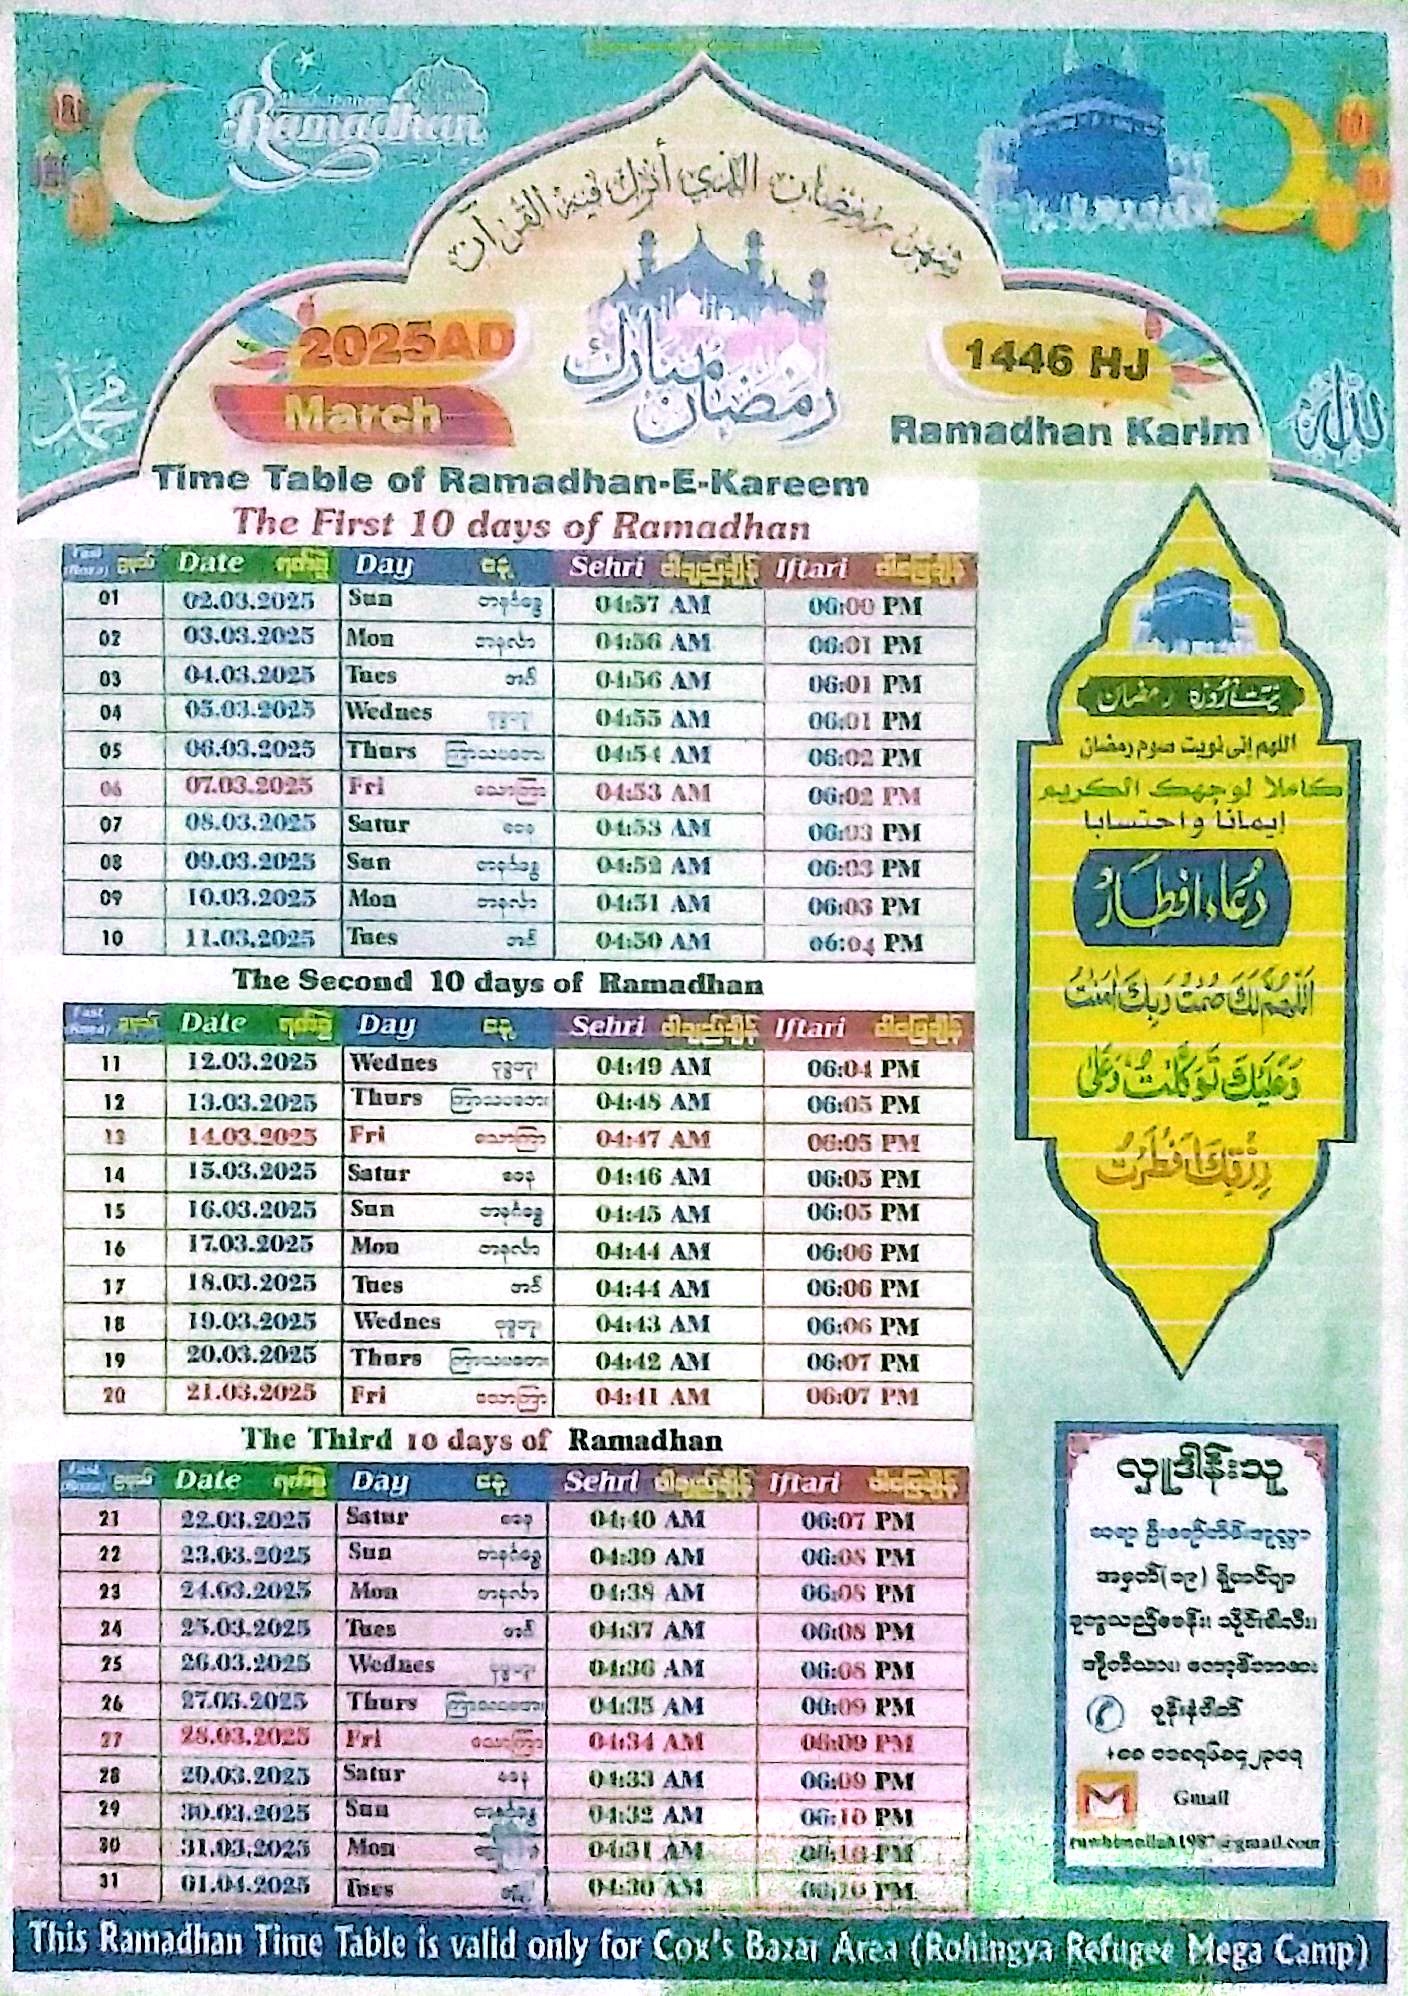 Ramadhan
شهر رمضان الذي أنزل فيه القرآن
2025AD
March
رمضان مبارك
1446 HJ
Ramadhan Karim
محمد
الله
Time Table of Ramadhan-E-Kareem
The First 10 days of Ramadhan
Fast Date ရက်စွဲ Day နေ့ Sehri ဝါချည်ချိန် Iftari ဝါဖြေချိန်
01 02.03.2025 Sun တနင်္ဂနွေ 04:57 AM 06:00 PM
02 03.03.2025 Mon တနင်္လာ 04:56 AM 06:01 PM
03 04.03.2025 Tues အင်္ဂါ 04:56 AM 06:01 PM
04 05.03.2025 Wednes ဗုဒ္ဓဟူး 04:55 AM 06:01 PM
05 06.03.2025 Thurs ကြာသပတေး 04:54 AM 06:02 PM
06 07.03.2025 Fri သောကြာ 04:53 AM 06:02 PM
07 08.03.2025 Satur စနေ 04:53 AM 06:03 PM
08 09.03.2025 Sun တနင်္ဂနွေ 04:52 AM 06:03 PM
09 10.03.2025 Mon တနင်္လာ 04:51 AM 06:03 PM
10 11.03.2025 Tues အင်္ဂါ 04:50 AM 06:04 PM
The Second 10 days of Ramadhan
Fast Date ရက်စွဲ Day နေ့ Sehri ဝါချည်ချိန် Iftari ဝါဖြေချိန်
11 12.03.2025 Wednes ဗုဒ္ဓဟူး 04:49 AM 06:04 PM
12 13.03.2025 Thurs ကြာသပတေး 04:48 AM 06:05 PM
13 14.03.2025 Fri သောကြာ 04:47 AM 06:05 PM
14 15.03.2025 Satur စနေ 04:46 AM 06:05 PM
15 16.03.2025 Sun တနင်္ဂနွေ 04:45 AM 06:05 PM
16 17.03.2025 Mon တနင်္လာ 04:44 AM 06:06 PM
17 18.03.2025 Tues အင်္ဂါ 04:44 AM 06:06 PM
18 19.03.2025 Wednes ဗုဒ္ဓဟူး 04:43 AM 06:06 PM
19 20.03.2025 Thurs ကြာသပတေး 04:42 AM 06:07 PM
20 21.03.2025 Fri သောကြာ 04:41 AM 06:07 PM
The Third 10 days of Ramadhan
Fast Date ရက်စွဲ Day နေ့ Sehri ဝါချည်ချိန် Iftari ဝါဖြေချိန်
21 22.03.2025 Satur စနေ 04:40 AM 06:07 PM
22 23.03.2025 Sun တနင်္ဂနွေ 04:39 AM 06:08 PM
23 24.03.2025 Mon တနင်္လာ 04:38 AM 06:08 PM
24 25.03.2025 Tues အင်္ဂါ 04:37 AM 06:08 PM
25 26.03.2025 Wednes ဗုဒ္ဓဟူး 04:36 AM 06:08 PM
26 27.03.2025 Thurs ကြာသပတေး 04:35 AM 06:09 PM
27 28.03.2025 Fri သောကြာ 04:34 AM 06:09 PM
28 29.03.2025 Satur စနေ 04:33 AM 06:09 PM
29 30.03.2025 Sun တနင်္ဂနွေ 04:32 AM 06:10 PM
30 31.03.2025 Mon 04:31 AM 06:10 PM
31 01.04.2025 Tues 04:30 AM 06:10 PM
نیت روزہ رمضان
اللهم إني نويت صوم رمضان
كاملا لوجهك الكريم
إيمانا واحتسابا
دُعَاء افطَار
اَللّٰهُمَّ لَكَ صُمْتُ وَبِكَ اٰمَنْتُ
وَعَلَيْكَ تَوَكَّلْتُ وَعَلٰى
رِزْقِكَ اَفْطَرْتُ
လှူဒါန်းသူ
ဖုန်းနံပါတ်
Gmail
This Ramadhan Time Table is valid only for Cox's Bazar Area (Rohingya Refugee Mega Camp)